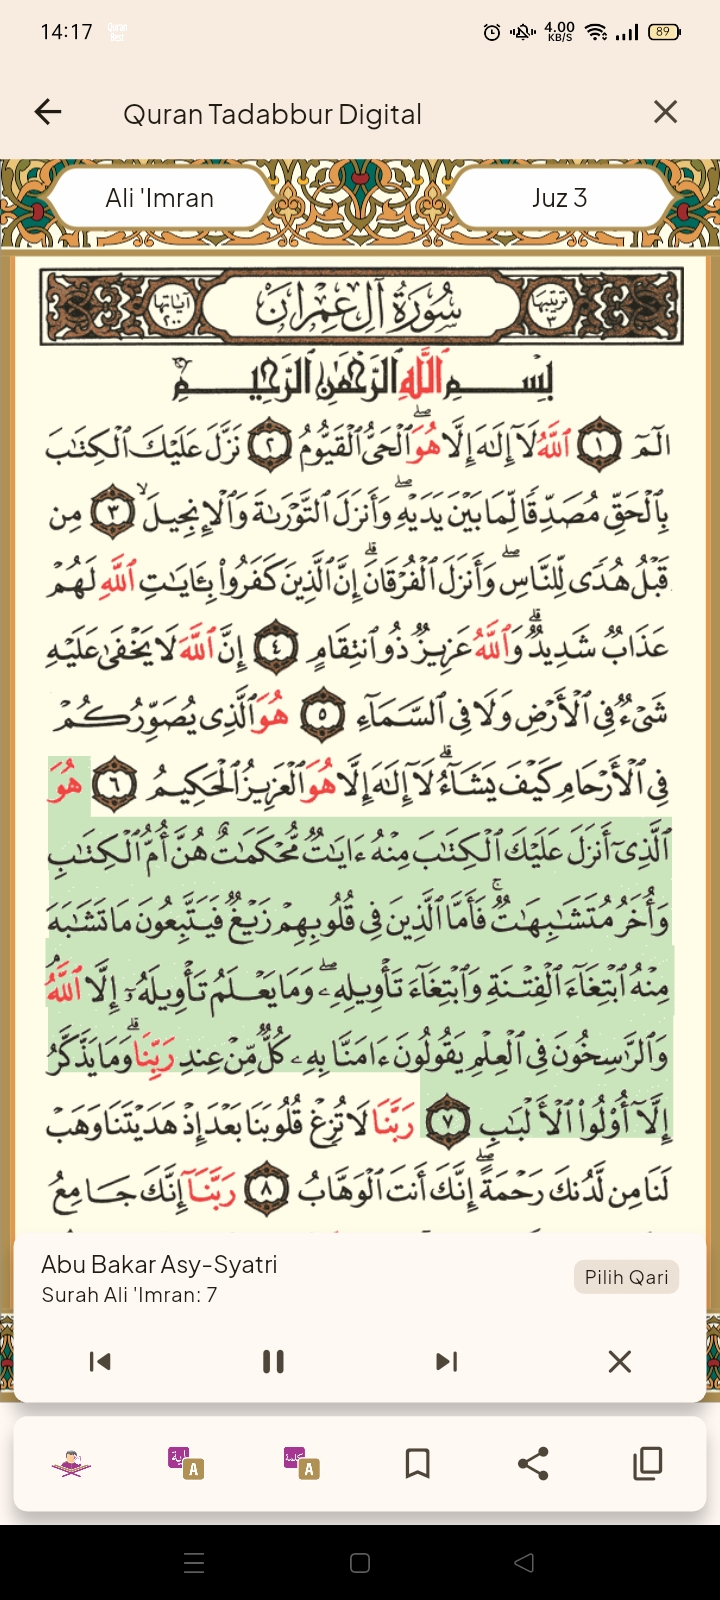 14:17
Quran Best
4.00 KB/S
89
Quran Tadabbur Digital
Ali 'Imran
Juz 3
ترتيبها ٣
سُورَةُ آلِ عِمْرَانَ
آياتها ٢٠٠
بِسْمِ ٱللَّهِ ٱلرَّحْمَٰنِ ٱلرَّحِيمِ
الٓمٓ ١ ٱللَّهُ لَآ إِلَٰهَ إِلَّا هُوَ ٱلْحَىُّ ٱلْقَيُّومُ ٢ نَزَّلَ عَلَيْكَ ٱلْكِتَٰبَ
بِٱلْحَقِّ مُصَدِّقًا لِّمَا بَيْنَ يَدَيْهِ ۖ وَأَنزَلَ ٱلتَّوْرَىٰةَ وَٱلْإِنجِيلَ ۙ ٣ مِن
قَبْلُ هُدًى لِّلنَّاسِ ۖ وَأَنزَلَ ٱلْفُرْقَانَ ۗ إِنَّ ٱلَّذِينَ كَفَرُوا۟ بِـَٔايَٰتِ ٱللَّهِ لَهُمْ
عَذَابٌ شَدِيدٌ ۗ وَٱللَّهُ عَزِيزٌ ذُو ٱنتِقَامٍ ٤ إِنَّ ٱللَّهَ لَا يَخْفَىٰ عَلَيْهِ
شَىْءٌ فِى ٱلْأَرْضِ وَلَا فِى ٱلسَّمَآءِ ٥ هُوَ ٱلَّذِى يُصَوِّرُكُمْ
فِى ٱلْأَرْحَامِ كَيْفَ يَشَآءُ ۗ لَآ إِلَٰهَ إِلَّا هُوَ ٱلْعَزِيزُ ٱلْحَكِيمُ ٦ هُوَ
ٱلَّذِىٓ أَنزَلَ عَلَيْكَ ٱلْكِتَٰبَ مِنْهُ ءَايَٰتٌ مُّحْكَمَٰتٌ هُنَّ أُمُّ ٱلْكِتَٰبِ
وَأُخَرُ مُتَشَٰبِهَٰتٌ ۚ فَأَمَّا ٱلَّذِينَ فِى قُلُوبِهِمْ زَيْغٌ فَيَتَّبِعُونَ مَا تَشَٰبَهَ
مِنْهُ ٱبْتِغَآءَ ٱلْفِتْنَةِ وَٱبْتِغَآءَ تَأْوِيلِهِۦ ۖ وَمَا يَعْلَمُ تَأْوِيلَهُۥٓ إِلَّا ٱللَّهُ ۗ
وَٱلرَّٰسِخُونَ فِى ٱلْعِلْمِ يَقُولُونَ ءَامَنَّا بِهِۦ كُلٌّ مِّنْ عِندِ رَبِّنَا ۗ وَمَا يَذَّكَّرُ
إِلَّآ أُو۟لُوا۟ ٱلْأَلْبَٰبِ ٧ رَبَّنَا لَا تُزِغْ قُلُوبَنَا بَعْدَ إِذْ هَدَيْتَنَا وَهَبْ
لَنَا مِن لَّدُنكَ رَحْمَةً ۚ إِنَّكَ أَنتَ ٱلْوَهَّابُ ٨ رَبَّنَآ إِنَّكَ جَامِعُ
Abu Bakar Asy-Syatri
Surah Ali 'Imran: 7
Pilih Qari
آية A
كلمة A